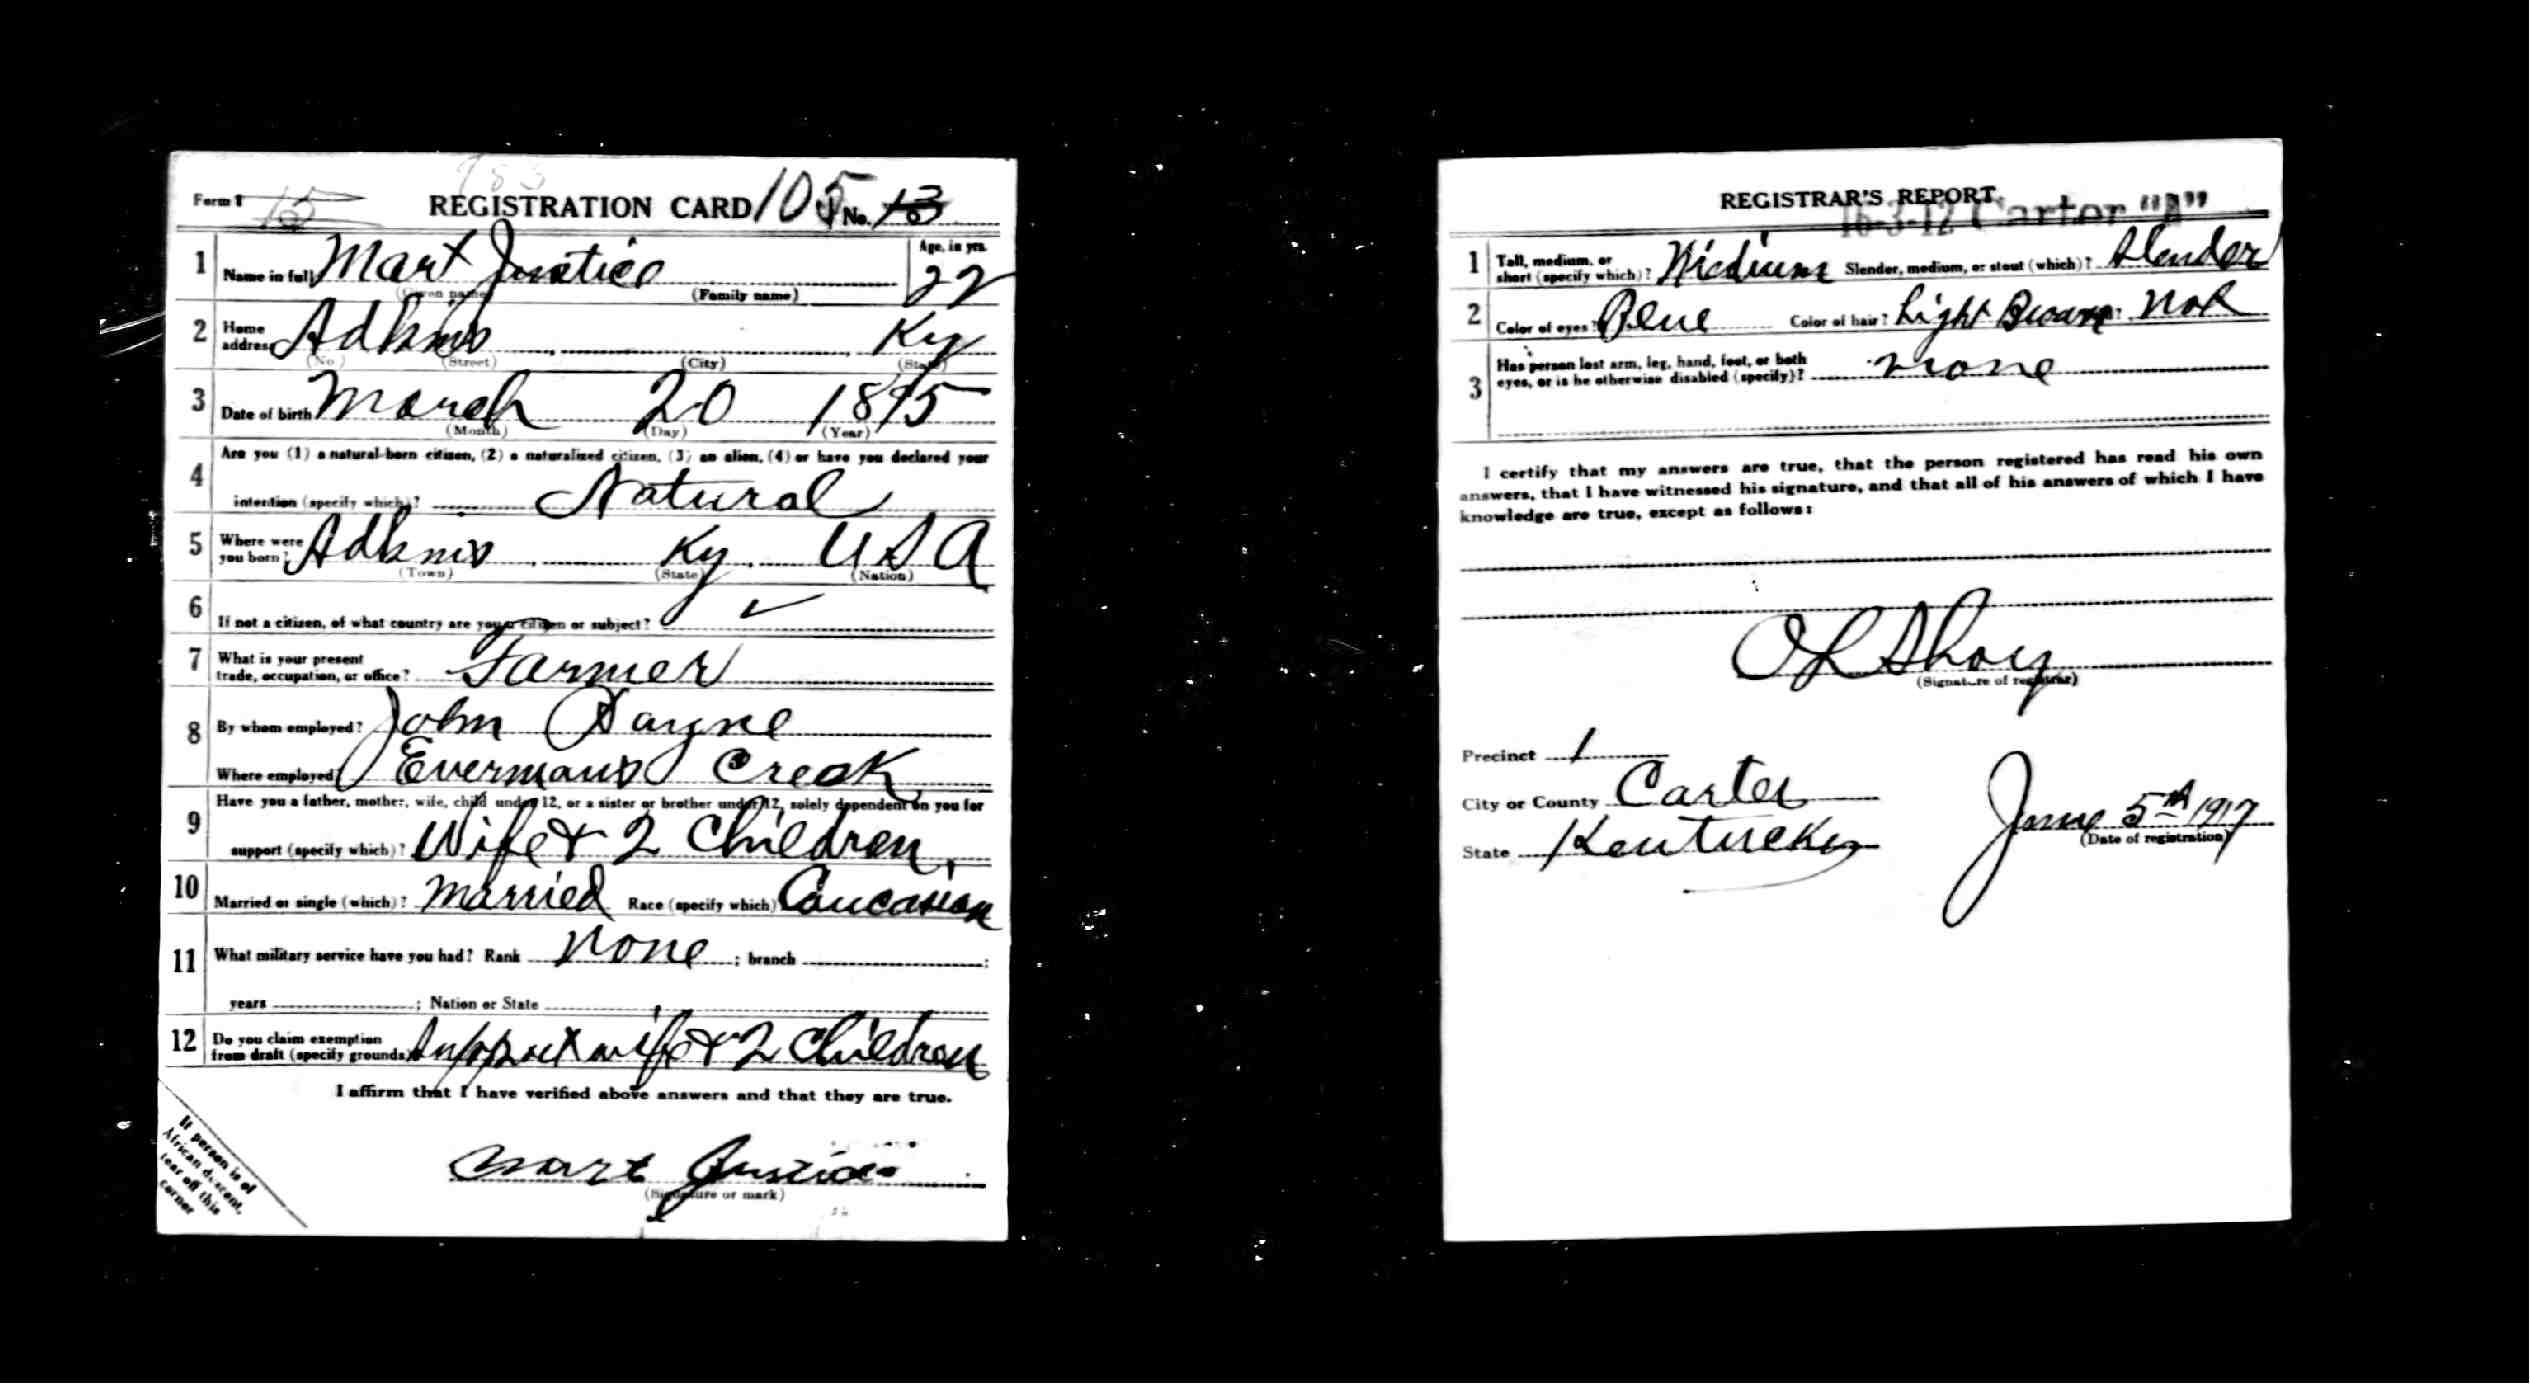 Form 1 15 REGISTRATION CARD 105 No. 13
1 Name in full Mart Justice Age, in yrs. 22
(Given name) (Family name)
2 Home address Adkins Ky
(No.) (Street) (City) (State)
3 Date of birth March 20 1895
(Month) (Day) (Year)
4 Are you (1) a natural-born citizen, (2) a naturalized citizen, (3) an alien, (4) or have you declared your
intention (specify which)? Natural
5 Where were you born? Adkins Ky USA
(Town) (State) (Nation)
6 If not a citizen, of what country are you a citizen or subject? ✓
7 What is your present
trade, occupation, or office? Farmer
8 By whom employed? John Payne
Where employed Evermans Creek
9 Have you a father, mother, wife, child under 12, or a sister or brother under 12, solely dependent on you for
support (specify which)? Wife & 2 Children
10 Married or single (which)? Married Race (specify which) Caucasian
11 What military service have you had? Rank None ; branch ;
years ; Nation or State
12 Do you claim exemption
from draft (specify grounds) Support wife & 2 Children
I affirm that I have verified above answers and that they are true.
Mart Justice
(Signature or mark)
If person is of
African descent,
tear off this
corner
REGISTRAR'S REPORT
16-3-12 Carter "A"
1 Tall, medium, or
short (specify which)? Medium Slender, medium, or stout (which)? Slender
2 Color of eyes? Blue Color of hair? Light Brown ?. No
3 Has person lost arm, leg, hand, foot, or both
eyes, or is he otherwise disabled (specify)? None
I certify that my answers are true, that the person registered has read his own
answers, that I have witnessed his signature, and that all of his answers of which I have
knowledge are true, except as follows:
(Signature of registrar)
Precinct 1
City or County Carter
State Kentucky
June 5th 1917
(Date of registration)